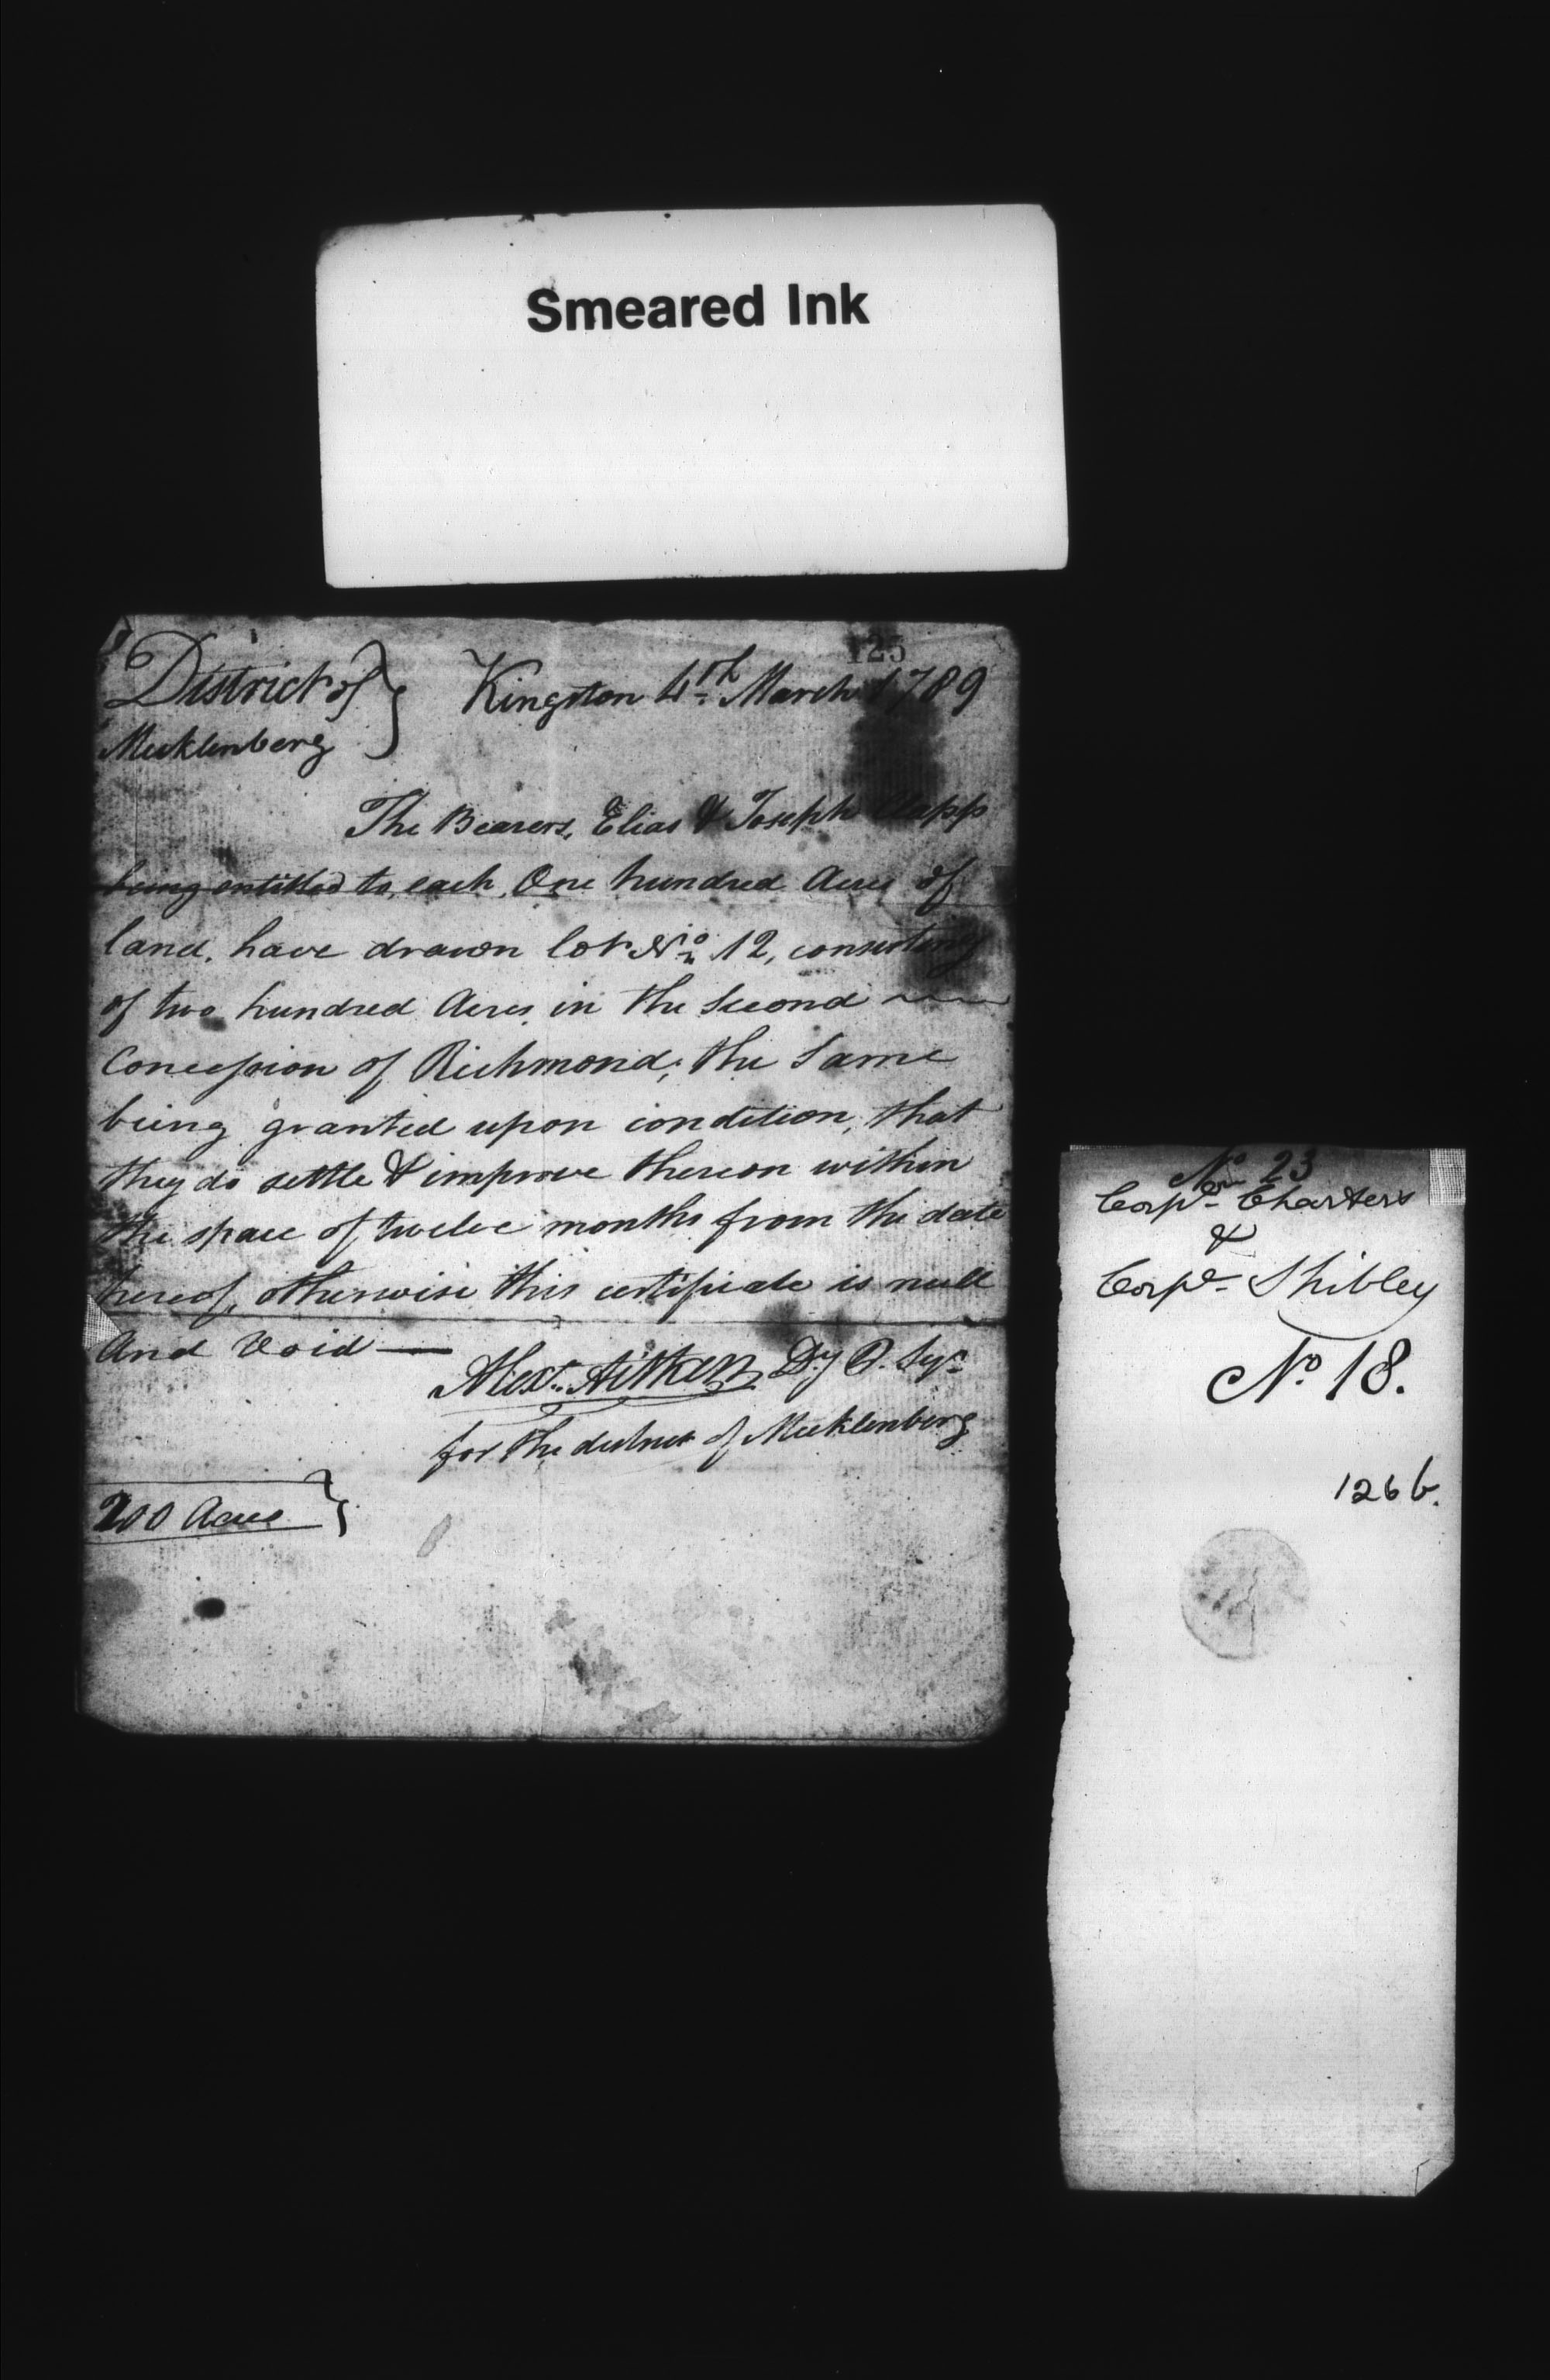 Smeared Ink
125
District of } Kingston 4th March 1789
Mecklenberg
The Bearers, Elias & Joseph Clapp
being entitled to, each, One hundred Acres of
land. have drawn lot No 12, consisting
of two hundred Acres in the Second
Concession of Richmond; the Same
being granted upon condition, that
they do settle & improve thereon within
the space of twelve months from the date
hereof, otherwise this certificate is null
And Void —
Alexr. Aitken Dy P. Syr
for the district of Mecklenberg
200 Acres }
No 23
Corpl Charters
&
Corpl Shibley
No 18.
126b.